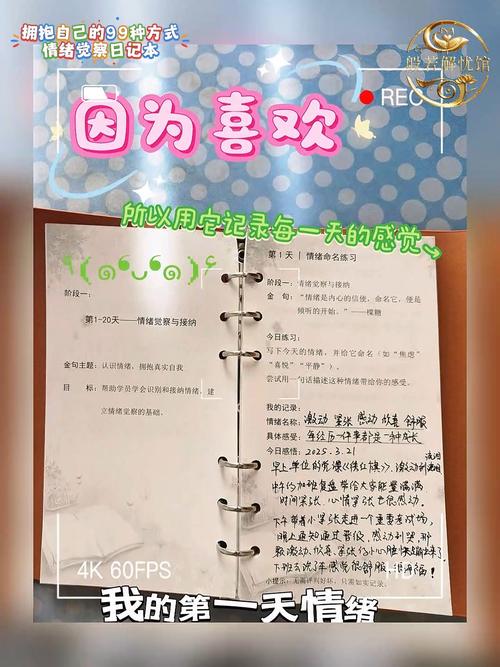 拥抱自己的99种方式
情绪觉察日记本
般若解忧馆
REC
因为喜欢
所以用它记录每一天的感觉→
阶段一：
第1-20天——情绪觉察与接纳
金句主题：认识情绪，拥抱真实自我
目    标：帮助学员学会识别和接纳情绪，建
立情绪觉察的基础。
第1天 | 情绪命名练习
阶段一：情绪觉察与接纳
金  句：“情绪是内心的信使，命名它，便是
倾听的开始。”——棵糖
今日练习：
写下今天的情绪，并给它命名（如“焦虑”
“喜悦”“平静”）。
尝试用一句话描述这种情绪带给你的感受。
我的记录：
情绪名称：激动 紧张 感动 欣喜 舒服
具体感受：每经历一件事都是一种成长
今日感悟：2025.3.21
早上单位的党课《 红旗》激动
时间紧张，心情紧张也很感动。
下午带着小紧张走进一个重要考试场，
晚上通知通过晋级，感动到哭，那
激动、欣喜、紧张的小心脏快
下班去 感觉很舒服
小提示：无需评判好坏，只需如实记录。
4K 60FPS
HD
我的第一天情绪